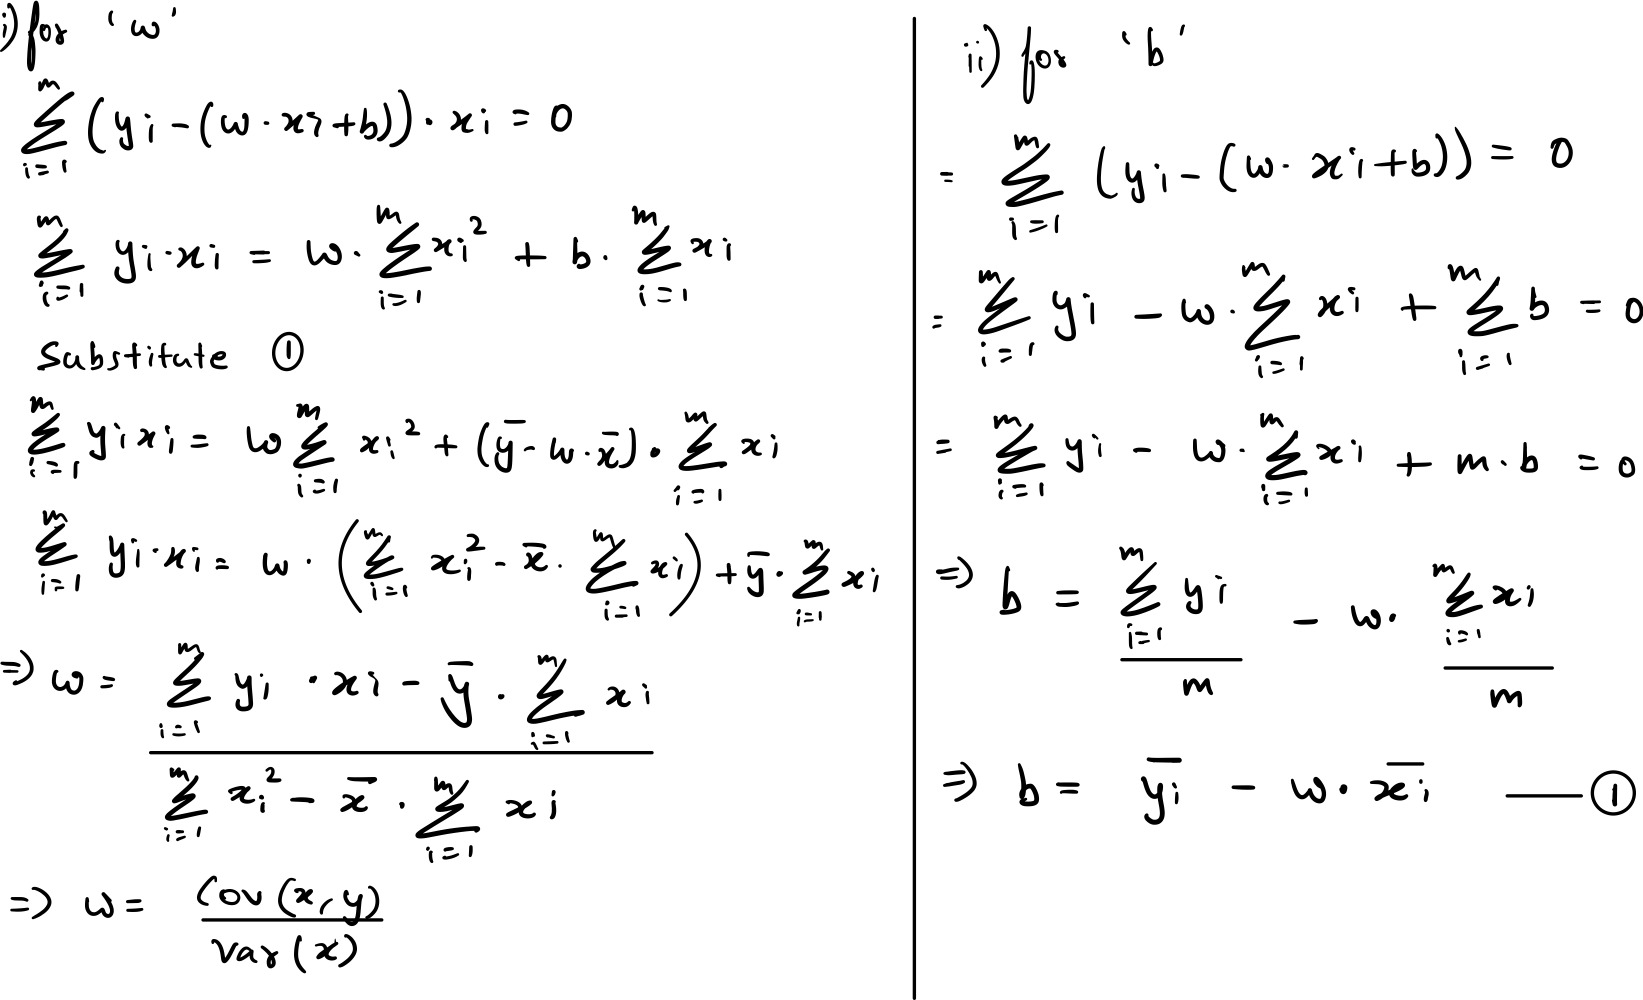 i) for 'w'
$\sum_{i=1}^{m} (y_i - (w \cdot x_i + b)) \cdot x_i = 0$
$\sum_{i=1}^{m} y_i \cdot x_i = w \cdot \sum_{i=1}^{m} x_i^2 + b \cdot \sum_{i=1}^{m} x_i$
Substitute ①
$\sum_{i=1}^{m} y_i x_i = w \sum_{i=1}^{m} x_i^2 + (\bar{y} - w \cdot \bar{x}) \cdot \sum_{i=1}^{m} x_i$
$\sum_{i=1}^{m} y_i \cdot x_i = w \cdot \left( \sum_{i=1}^{m} x_i^2 - \bar{x} \cdot \sum_{i=1}^{m} x_i \right) + \bar{y} \cdot \sum_{i=1}^{m} x_i$
$\Rightarrow w = \frac{\sum_{i=1}^{m} y_i \cdot x_i - \bar{y} \cdot \sum_{i=1}^{m} x_i}{\sum_{i=1}^{m} x_i^2 - \bar{x} \cdot \sum_{i=1}^{m} x_i}$
$\Rightarrow w = \frac{Cov(x, y)}{Var(x)}$
ii) for 'b'
$= \sum_{i=1}^{m} (y_i - (w \cdot x_i + b)) = 0$
$= \sum_{i=1}^{m} y_i - w \cdot \sum_{i=1}^{m} x_i + \sum_{i=1}^{m} b = 0$
$= \sum_{i=1}^{m} y_i - w \cdot \sum_{i=1}^{m} x_i + m \cdot b = 0$
$\Rightarrow b = \frac{\sum_{i=1}^{m} y_i}{m} - w \cdot \frac{\sum_{i=1}^{m} x_i}{m}$
$\Rightarrow b = \bar{y_i} - w \cdot \bar{x_i}$ —— ①